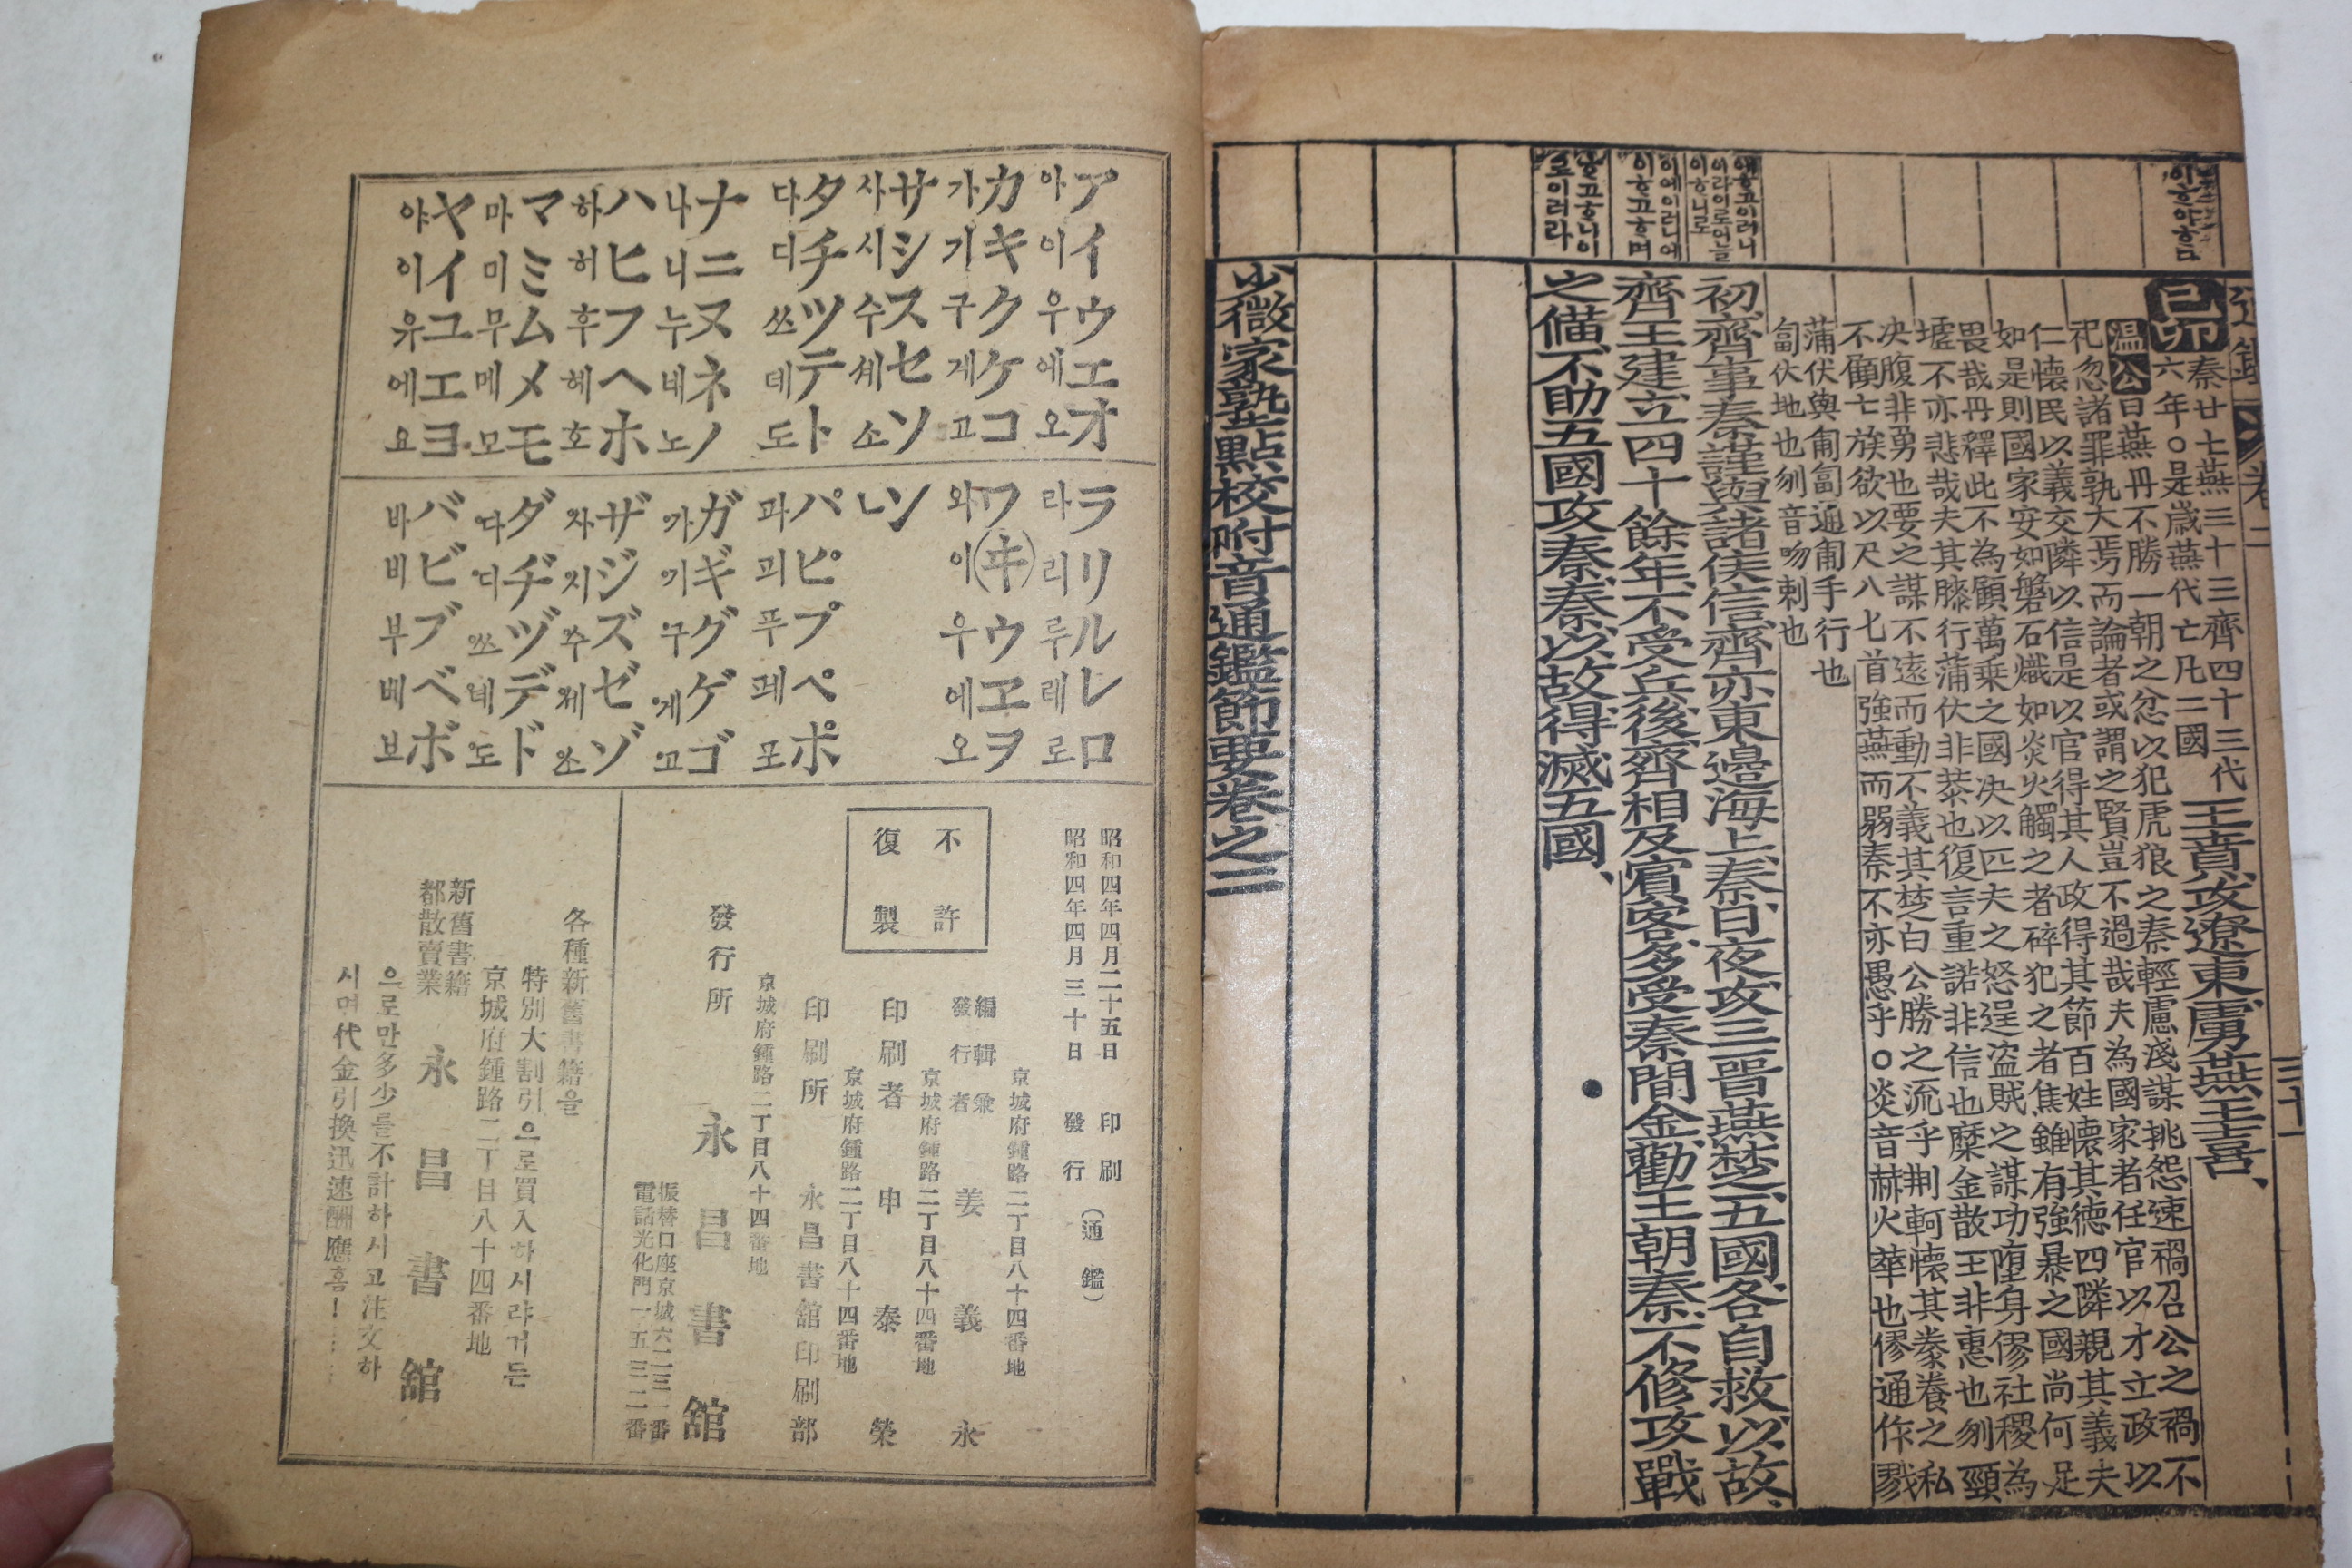 通鑑 卷二 三十一
이ᄒᆞ야ᄒᆞᆷ
己卯 秦廿七燕三十三齊四十三代
六年○是歲燕代亡凡二國
王賁、攻遼東、虜燕王喜、
温公曰燕丹不勝一朝之忿以犯虎狼之秦輕慮淺謀挑怨速禍召公之禍不
祀忽諸罪孰大焉而論者或謂之賢豈不過哉夫為國家者任官以才立政以
仁懷民以義交隣以信是以官得其人政得其節百姓懷其德四隣親其義夫
如是則國家安如磐石熾如炎火觸之者碎犯之者焦雖有強暴之國尚何足
畏哉丹釋此不為顧萬乘之國決以匹夫之怒逞盜賊之謀功墮身僇社稷為
墟不亦悲哉夫其膝行蒲伏非恭也復言重諾非信也糜金散王非惠也刎頸
決腹非勇也要之謀不遠而動不義其楚白公勝之流乎荊軻懷其豢養之私
不顧七族欲以尺八匕首強燕而弱秦不亦愚乎○炎音赫火華也僇通作戮
蒲伏與匍匐通匍手行也
匐伏地也刎音吻剌也
이ᄒᆞ니로
初齊事秦謹、與諸侯信、齊亦東邊海上、秦、日夜攻三晉燕楚、五國各自救、以故、
이에이러니에
이ᄒᆞ고ᄒᆞ며
齊王建、立四十餘年、不受兵、後齊相及賓客、多受秦間金、勸王朝秦、不修攻戰
로이러라
之備、不助五國攻秦、秦、以故得滅五國、
少微家塾點校附音通鑑節要卷之二
ア아 イ이 ウ우 エ에 オ오
カ가 キ기 ク구 ケ게 コ고
サ사 シ시 ス수 セ세 ソ소
タ다 チ디 ツ쓰 テ데 ト도
ナ나 ニ니 ヌ누 ネ네 ノ노
ハ하 ヒ허 フ후 ヘ헤 ホ호
マ마 ミ미 ム무 メ메 モ모
ヤ야 イ이 ユ유 エ에 ヨ요
ラ라 リ리 ル루 レ레 ロ로
ワ와 (ヰ)이 ウ우 ヱ에 ヲ오
ンㄴ
パ파 ピ피 プ푸 ペ페 ポ포
ガ가 ギ기 グ구 ゲ게 ゴ고
ザ자 ジ지 ズ주 ゼ제 ゾ소
ダ다 ヂ디 ヅ쓰 デ데 ド도
バ바 ビ비 ブ부 ベ베 ボ보
昭和四年四月二十五日 印刷
昭和四年四月三十日 發行
(通鑑)
不許
復製
京城府鍾路二丁目八十四番地
編輯兼
發行者 姜義永
京城府鍾路二丁目八十四番地
印刷者 申泰榮
京城府鍾路二丁目八十四番地
印刷所 永昌書舘印刷部
京城府鍾路二丁目八十四番地
發行所 永昌書舘
振替口座京城六二三一番
電話光化門一五三二番
各種新舊書籍을
特別大割引으로買入하시랴거든
京城府鍾路二丁目八十四番地
新舊書籍
都散賣業 永昌書舘
으로만多少를不計하시고注文하
시며代金引換迅速酬應홈!……